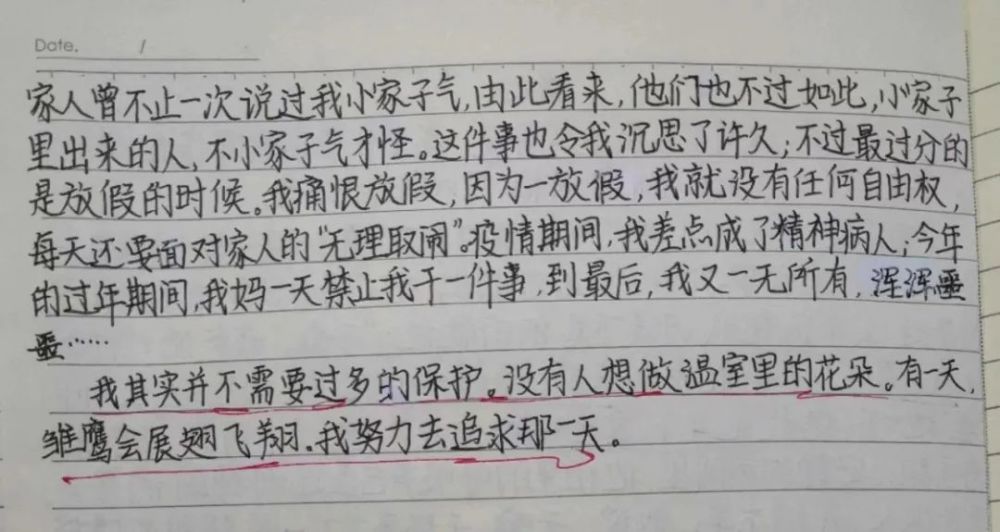 Date. /
家人曾不止一次说过我小家子气,由此看来,他们也不过如此,小家子
里出来的人,不小家子气才怪。这件事也令我沉思了许久;不过最过分的
是放假的时候。我痛恨放假,因为一放假,我就没有任何自由权,
每天还要面对家人的“无理取闹”。疫情期间,我差点成了精神病人;今年
的过年期间,我妈一天禁止我干一件事,到最后,我又一无所有,浑浑噩
噩……
我其实并不需要过多的保护。没有人想做温室里的花朵。有一天,
雏鹰会展翅飞翔.我努力去追求那一天。